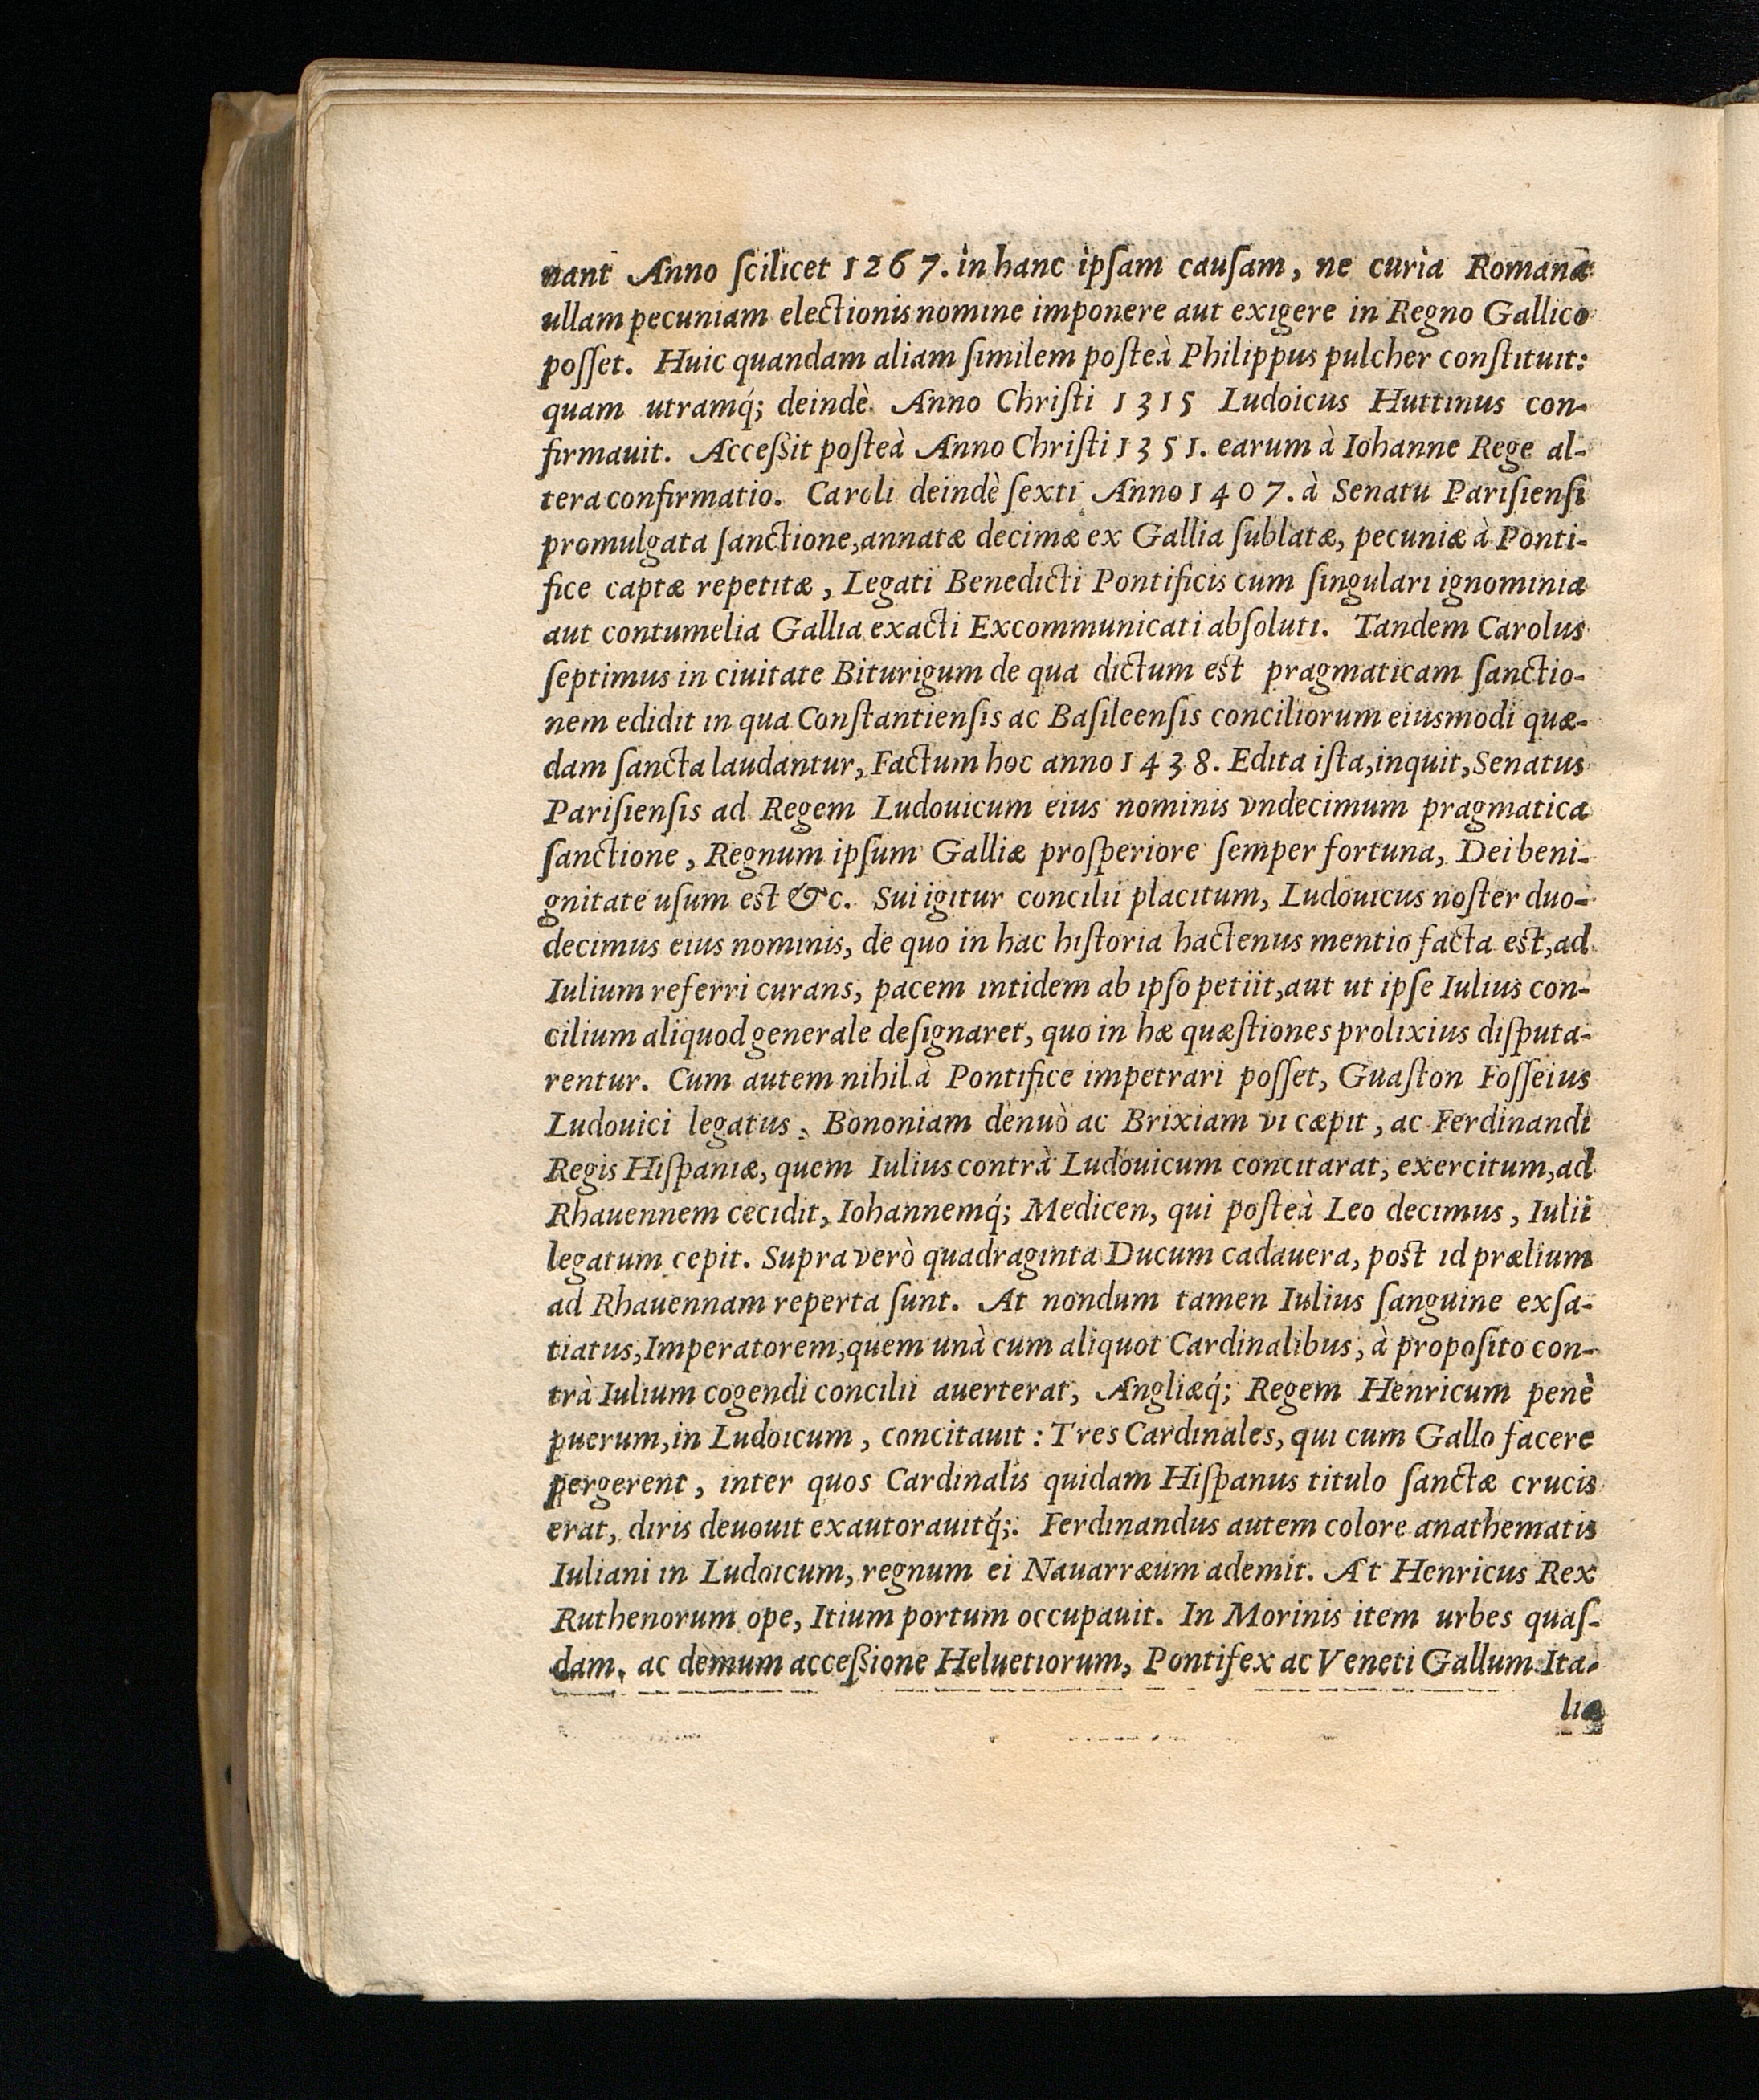 nant Anno ſcilicet 1267. in hanc ipſam cauſam, ne curia Romana
ullam pecuniam electionis nomine imponere aut exigere in Regno Gallico
poſſet. Huic quandam aliam ſimilem poſteà Philippus pulcher conſtituit:
quam utramq́; deindè Anno Chriſti 1315 Ludoicus Huttinus con-
firmauit. Acceßit poſteà Anno Chriſti 1351. earum à Iohanne Rege al-
tera confirmatio. Caroli deindè ſexti Anno 1407. à Senatu Pariſienſi
promulgata ſanctione, annatæ decimæ ex Gallia ſublatæ, pecuniæ à Ponti-
fice captæ repetitæ, Legati Benedicti Pontificis cum ſingulari ignominia
aut contumelia Gallia exacti Excommunicati abſoluti. Tandem Carolus
ſeptimus in ciuitate Biturigum de qua dictum est pragmaticam ſanctio-
nem edidit in qua Conſtantienſis ac Baſileenſis conciliorum eiusmodi quæ-
dam ſancta laudantur, Factum hoc anno 1438. Edita iſta, inquit, Senatus
Pariſienſis ad Regem Ludouicum eius nominis vndecimum pragmatica
ſanctione, Regnum ipſum Galliæ proſperiore ſemper fortuna, Dei beni-
gnitate uſum est &c. Sui igitur concilii placitum, Ludouicus noſter duo-
decimus eius nominis, de quo in hac hiſtoria hactenus mentio facta est, ad
Iulium referri curans, pacem intidem ab ipſo petiit, aut ut ipſe Iulius con-
cilium aliquod generale deſignaret, quo in hæ quæſtiones prolixius diſputa-
rentur. Cum autem nihil à Pontifice impetrari poſſet, Guaſton Foſſeius
Ludouici legatus, Bononiam denuò ac Brixiam vi cæpit, ac Ferdinandi
Regis Hiſpaniæ, quem Iulius contrà Ludouicum concitarat, exercitum, ad
Rhauennem cecidit, Iohannemq́; Medicen, qui poſteà Leo decimus, Iulii
legatum cepit. Supra verò quadraginta Ducum cadauera, post id prælium
ad Rhauennam reperta ſunt. At nondum tamen Iulius ſanguine exſa-
tiatus, Imperatorem, quem unà cum aliquot Cardinalibus, à propoſito con-
trà Iulium cogendi concilii auerterat, Angliæq́; Regem Henricum penè
puerum, in Ludoicum, concitauit: Tres Cardinales, qui cum Gallo facere
pergerent, inter quos Cardinalis quidam Hiſpanus titulo ſanctæ crucis
erat, diris deuouit exautorauitq́;. Ferdinandus autem colore anathematis
Iuliani in Ludoicum, regnum ei Nauarræum ademit. At Henricus Rex
Ruthenorum ope, Itium portum occupauit. In Morinis item urbes quaſ-
dam, ac demum acceßione Heluetiorum, Pontifex ac Veneti Gallum Ita-
lia